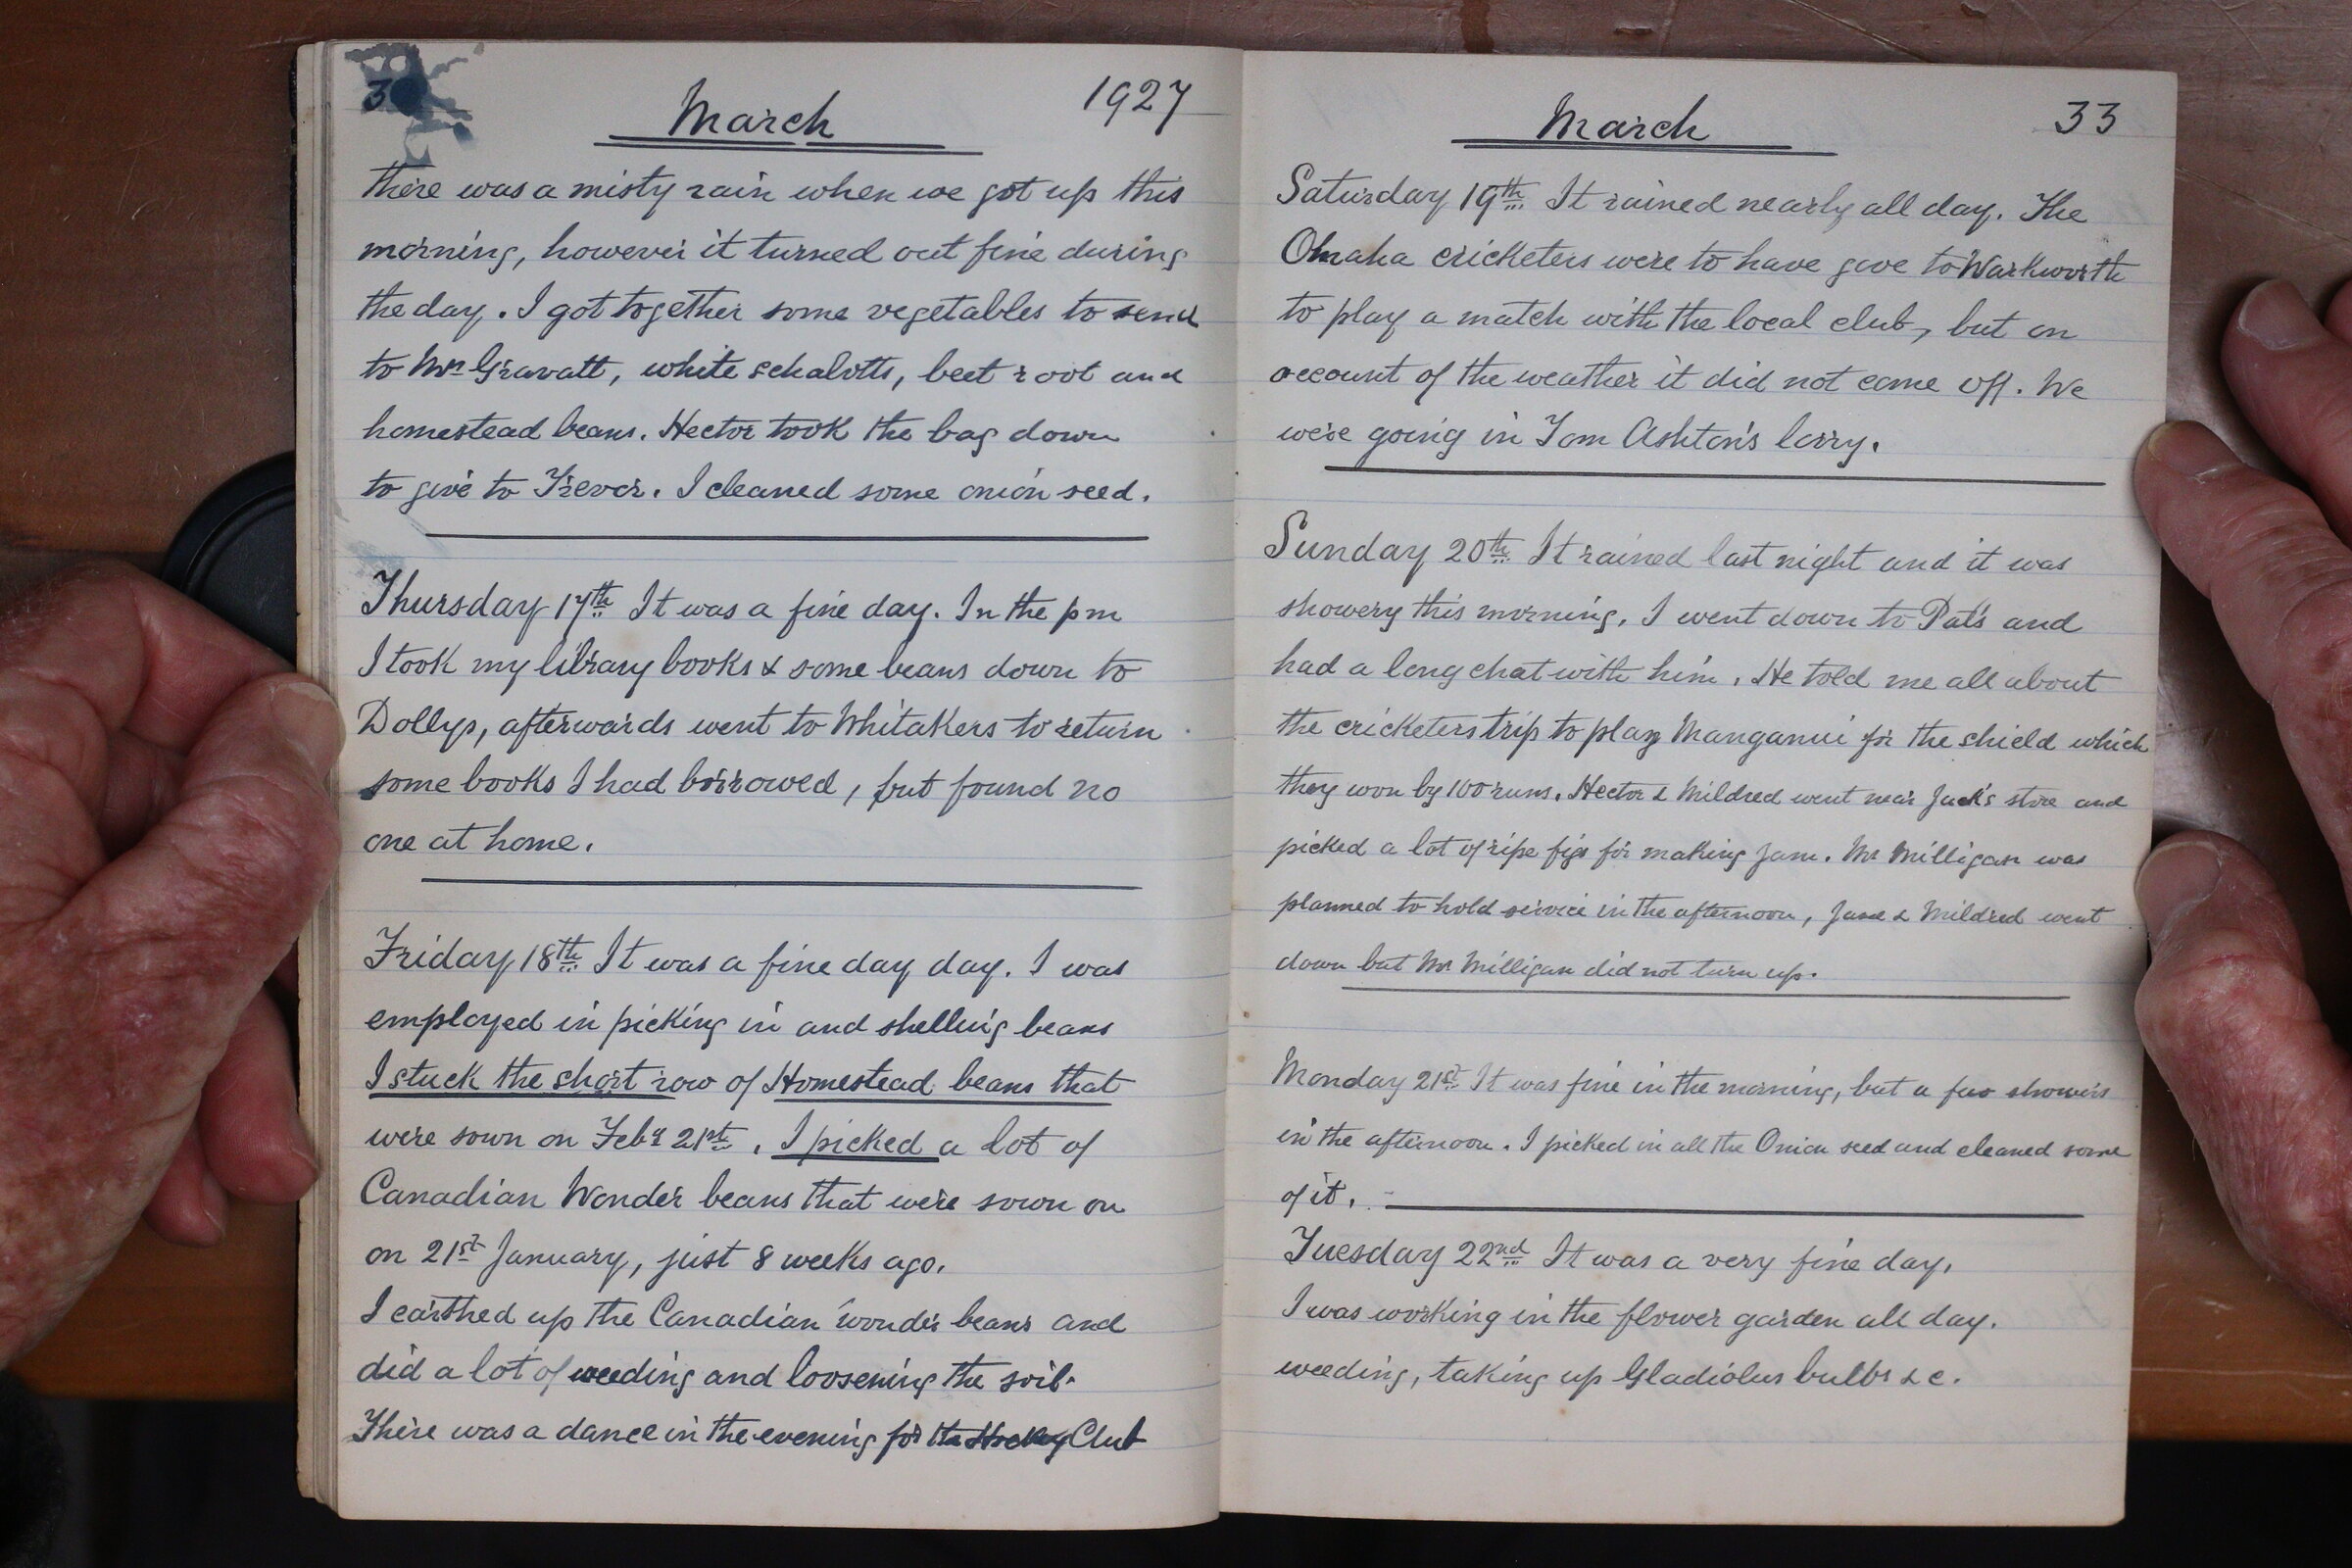 3
March
1927
there was a misty rain when we got up this
morning, however it turned out fine during
the day. I got together some vegetables to send
to Mrs Gravatt, white schalotts, beet root and
homestead beans. Hector took the bag down
to give to Trevor. I cleaned some onion seed.
Thursday 17th It was a fine day. In the pm
I took my library books & some beans down to
Dollys, afterwards went to Whitakers to return
some books I had borrowed, but found no
one at home.
Friday 18th It was a fine day day. I was
employed in picking in and shelling beans
I stuck the short row of Homestead beans that
were sown on Feby 21st. I picked a lot of
Canadian Wonder beans that were sown on
on 21st January, just 8 weeks ago.
I earthed up the Canadian wonder beans and
did a lot of weeding and loosening the soil.
There was a dance in the evening for the Hockey Club
March
33
Saturday 19th It rained nearly all day. The
Omaha cricketers were to have gove to Warkworth
to play a match with the local club, but on
account of the weather it did not come off. We
were going in Tom Ashton's lorry.
Sunday 20th It rained last night and it was
showery this morning. I went down to Pat's and
had a long chat with him. He told me all about
the cricketers trip to play Manganui for the shield which
they won by 100 runs. Hector & Mildred went near Jack's store and
picked a lot of ripe figs for making Jam. Mr Milligan was
planned to hold service in the afternoon, Jane & Mildred went
down but Mr Milligan did not turn up.
Monday 21st It was fine in the morning, but a few showers
in the afternoon. I picked in all the Onion seed and cleaned some
of it.
Tuesday 22nd It was a very fine day.
I was working in the flower garden all day.
weeding, taking up Gladiolus bulbs &c.